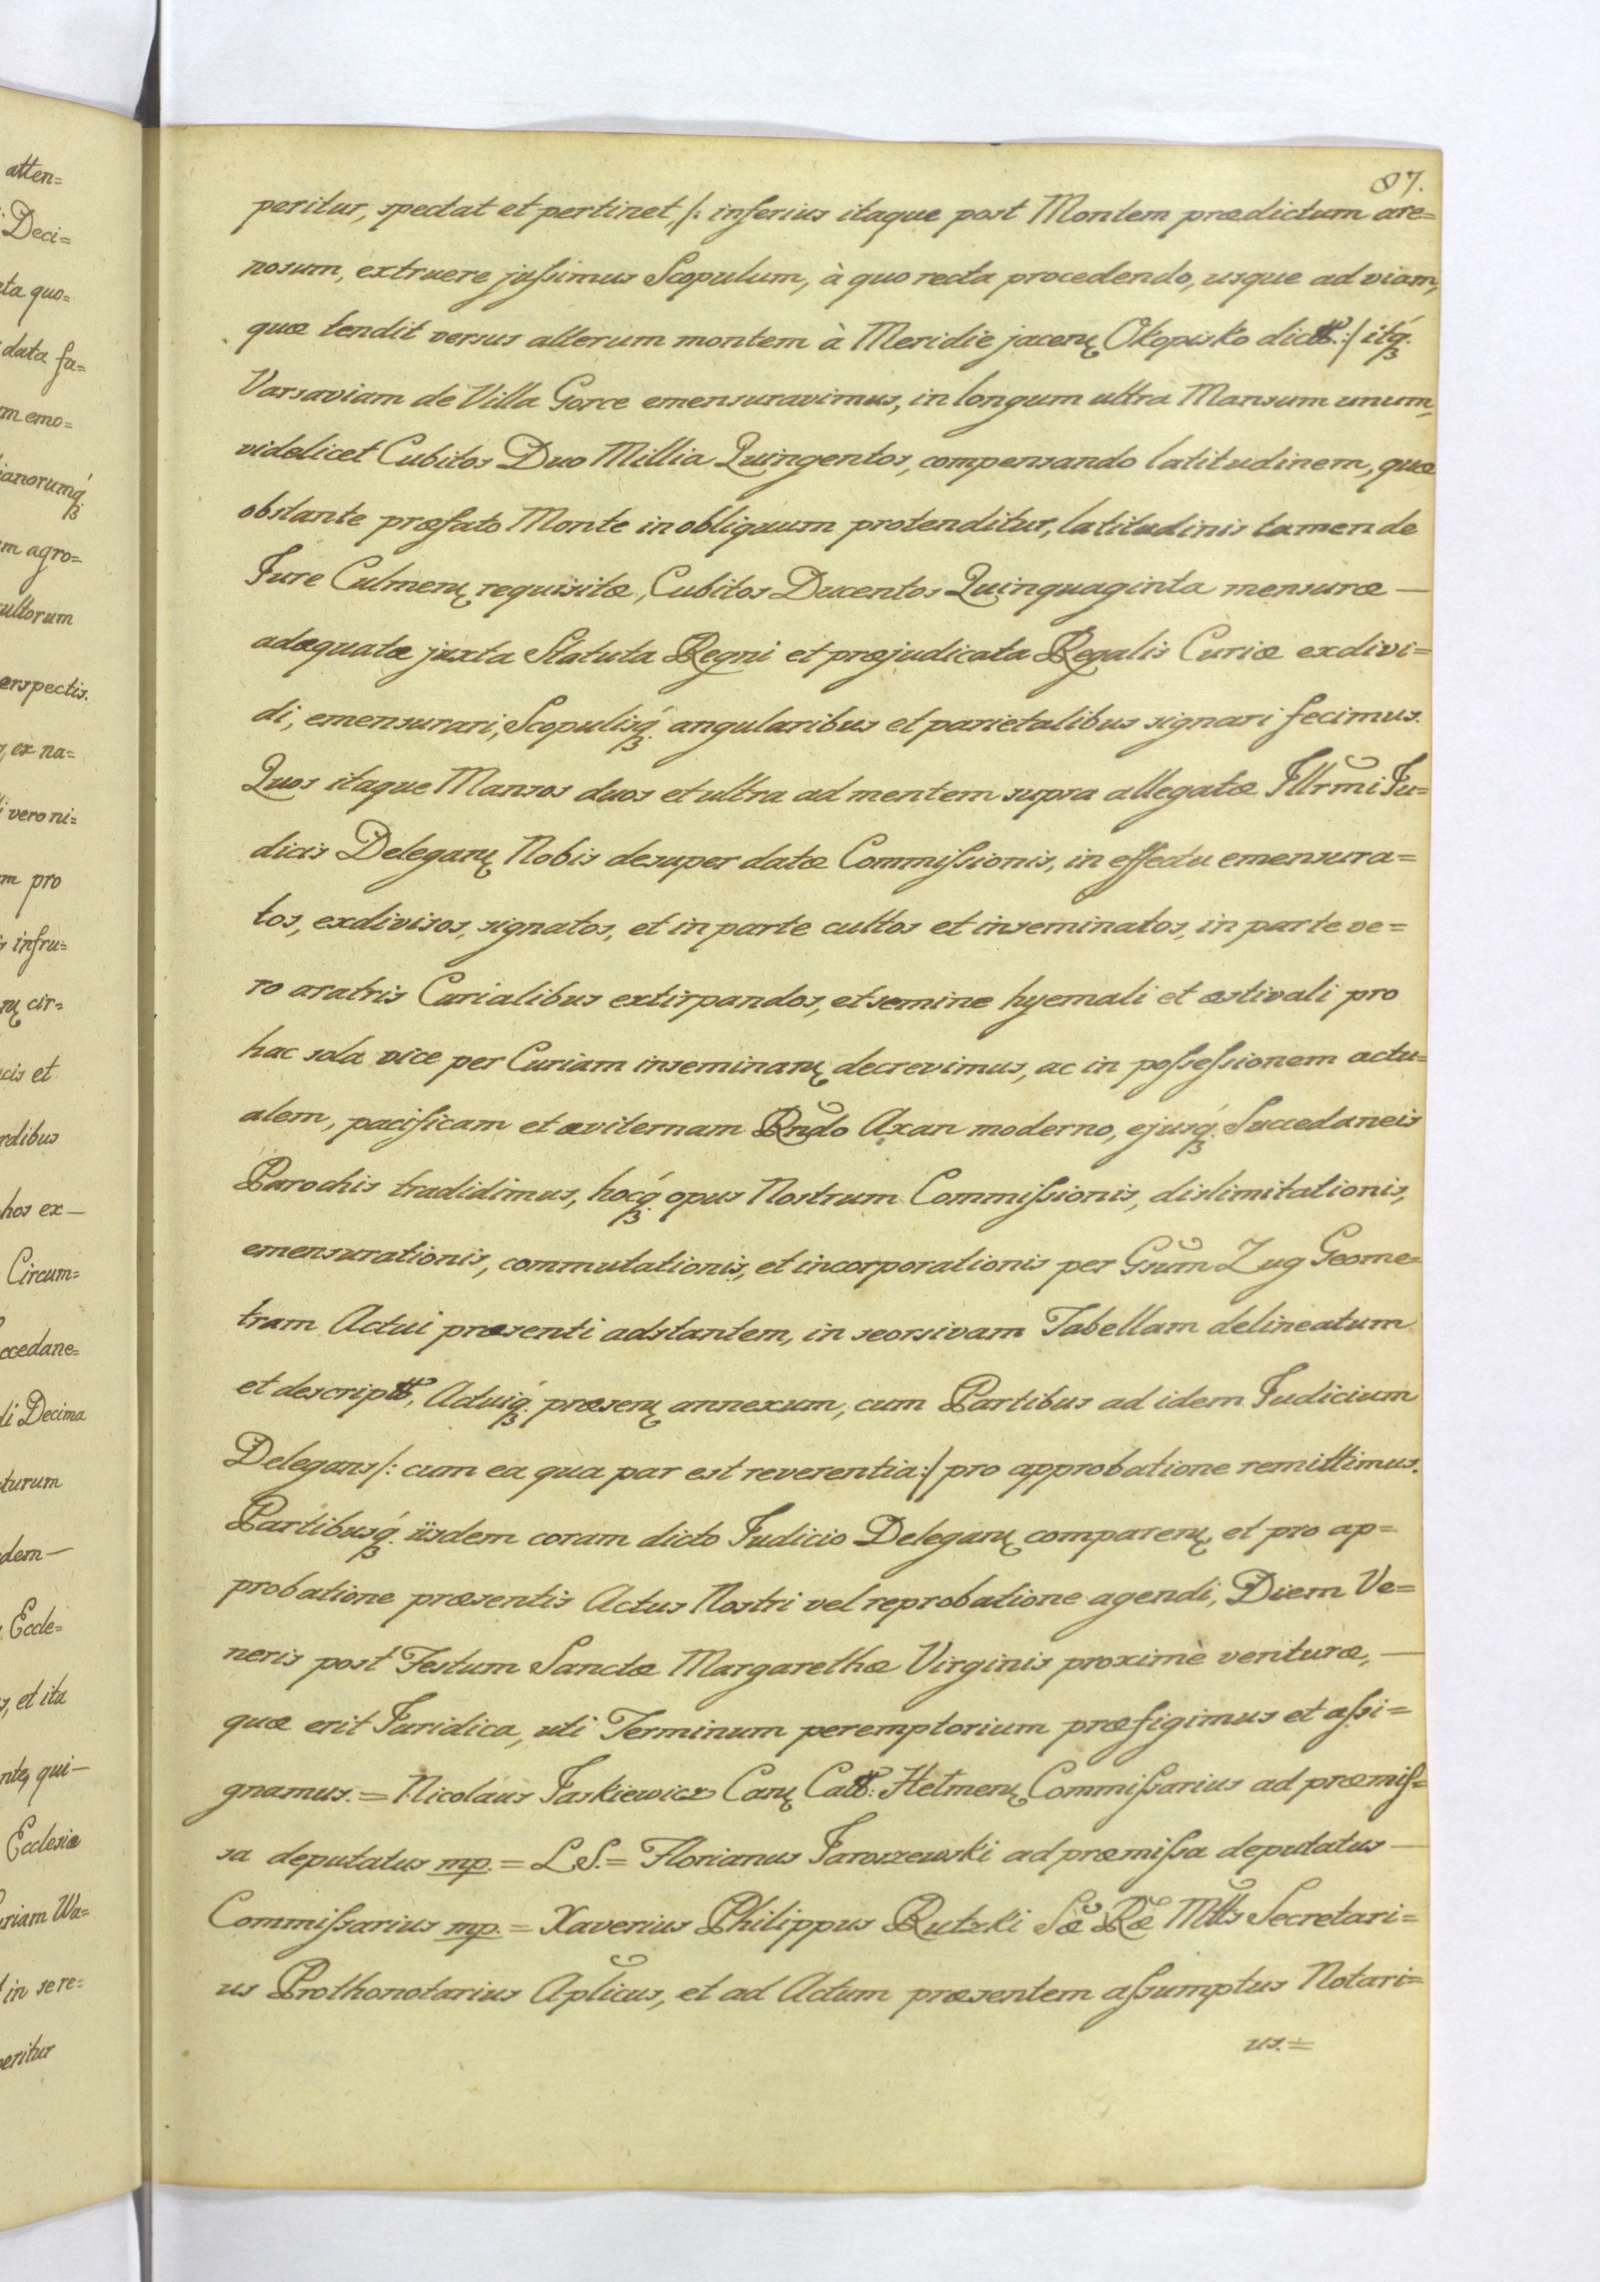 87.
peritur, spectat et pertinet /: inferius itaque post Montem prædictum are=
nosum, extruere jussimus Scopulum, à quo recta procedendo, usque ad viam,
quæ tendit versus alterum montem à Meridie jacenų Okopisko dictt. :/ itq́ꝫ.
Varsaviam de Villa Gorce emensuravimus, in longum ultra Mansum unum,
videlicet Cubitos Duo Millia Quingentos, compensando latitudinem, quæ
obstante præfato Monte in obliquum protenditur, latitudinis tamen de
Jure Culmenų requisitæ, Cubitos Ducentos Quinquaginta mensuræ —
adæquatæ juxta Statuta Regni et præjudicata Regalis Curiæ exdivi=
di, emensurari, Scopulisq́ꝫ. angularibus et parietalibus signari fecimus.
Quos itaque Mansos duos et ultra ad mentem supra allegatæ Illr̃mi Ju=
dicis Deleganų Nobis desuper datæ Commissionis, in effectu emensura=
tos, exdivisos, signatos, et in parte cultos et inseminatos, in parte ve=
ro aratris Curialibus extirpandos, et semine hyemali et æstivali pro
hac sola vice per Curiam inseminanų decrevimus, ac in possessionem actu=
alem, pacificam et æviternam Rñdo Axan moderno, ejusq́ꝫ. Succedaneis
Parochis tradidimus, hocq́ꝫ. opus Nostrum Commissionis, dislimitationis,
emensurationis, commutationis, et incorporationis per Gsũm Zug Geome=
tram Actui præsenti adstantem, in seorsivam Tabellam delineatum
et descriptt, Actuiq́ꝫ. præsenų annexum, cum Partibus ad idem Judicium
Delegans /: cum ea qua par est reverentia :/ pro approbatione remittimus.
Partibusq́ꝫ. iisdem coram dicto Judicio Deleganų comparenų et pro ap=
probatione præsentis Actus Nostri vel reprobatione agendi, Diem Ve=
neris post Festum Sanctæ Margarethæ Virginis proximè venturæ, —
quæ erit Juridica, uti Terminum peremptorium præfigimus et assi=
gnamus. = Nicolaus Jaskiewicz Canų Catt: Hetmenų Commissarius ad præmis=
sa deputatus mp. = L.S. = Florianus Jaroszewski ad præmissa deputatus —
Commissarius mp. = Xaverius Philippus Rutzki Sæ̃ Ræ̃ Mtt̃s Secretari=
us Prothonotarius Ap̃licus, et ad Actum præsentem assumptus Notari=
us. =